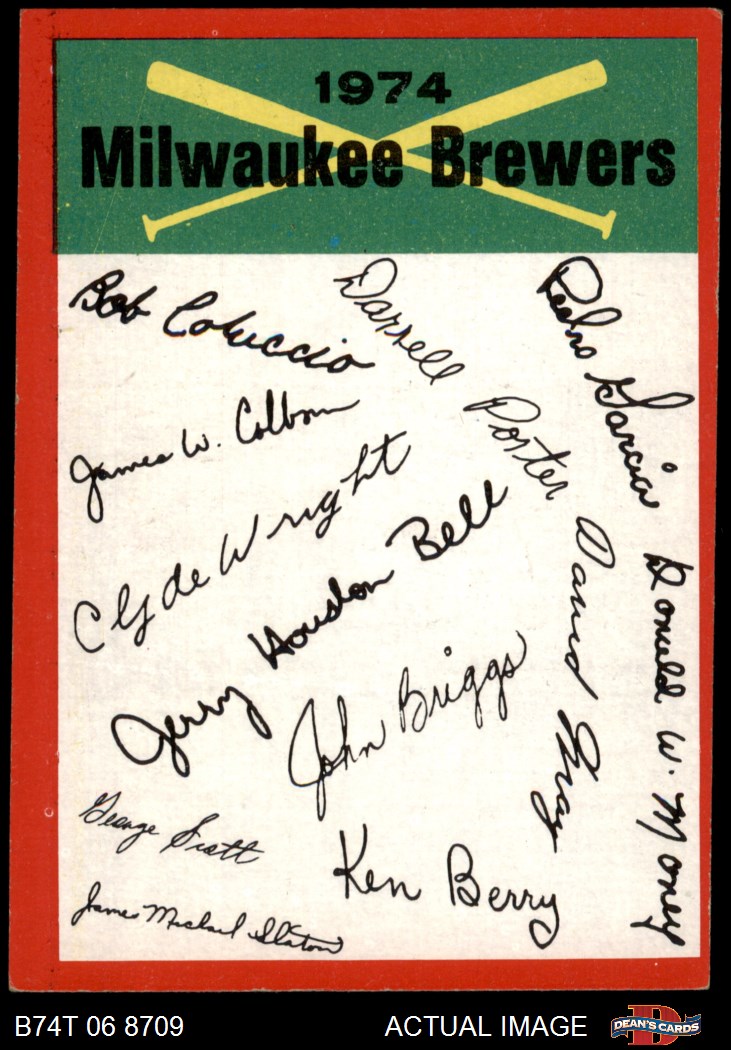 1974
Milwaukee Brewers
Bob Coluccio
Darrell Porter
Pedro Garcia
James W. Colborn
Clyde Wright
Jerry Houston Bell
David May
Donald W. Money
John Briggs
George Scott
Ken Berry
James Michael Slaton
B74T 06 8709
ACTUAL IMAGE
D
DEAN'S CARDS